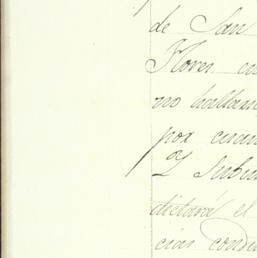 de San
Flores en
no hallan
por cuan
Y Subin
dictará el
cias condu